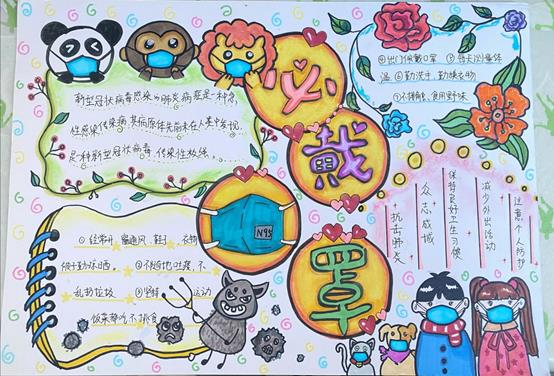 新型冠状病毒感染的肺炎病症是一种急
性感染传染病,其病原体先前未在人类中发现,
是一种新型冠状病毒,传染性较强
必
戴
罩
④出门佩戴口罩 ⑤每天测量体
温 ⑥勤洗手、勤换衣物
⑦不捕食、食用野味
抗击肺炎
众志成城
保持良好卫生习惯
减少外出活动
注意个人防护
N95
①经常开窗通风、鞋子、衣物
被子勤晾晒。②不随地吐痰、不
乱扔垃圾 ③坚持 运动
饭菜都吃不挑食